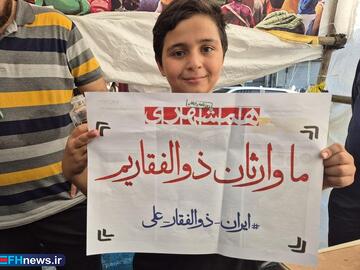 همشهری
ما وارثان ذوالفقاریم
#ایران-ذوالفقار-علی
FHnews.ir